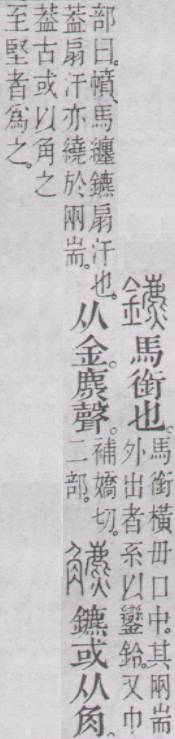 鑣馬銜也。馬銜橫毌口中。其兩耑
外出者系以鑾鈴。又巾
部曰。幩、馬纏鑣扇汗也。
从金麃聲。補嬌切。
二部。
鑣或从角。
葢扇汗亦繞於兩耑。
葢古或以角之
至堅者爲之。